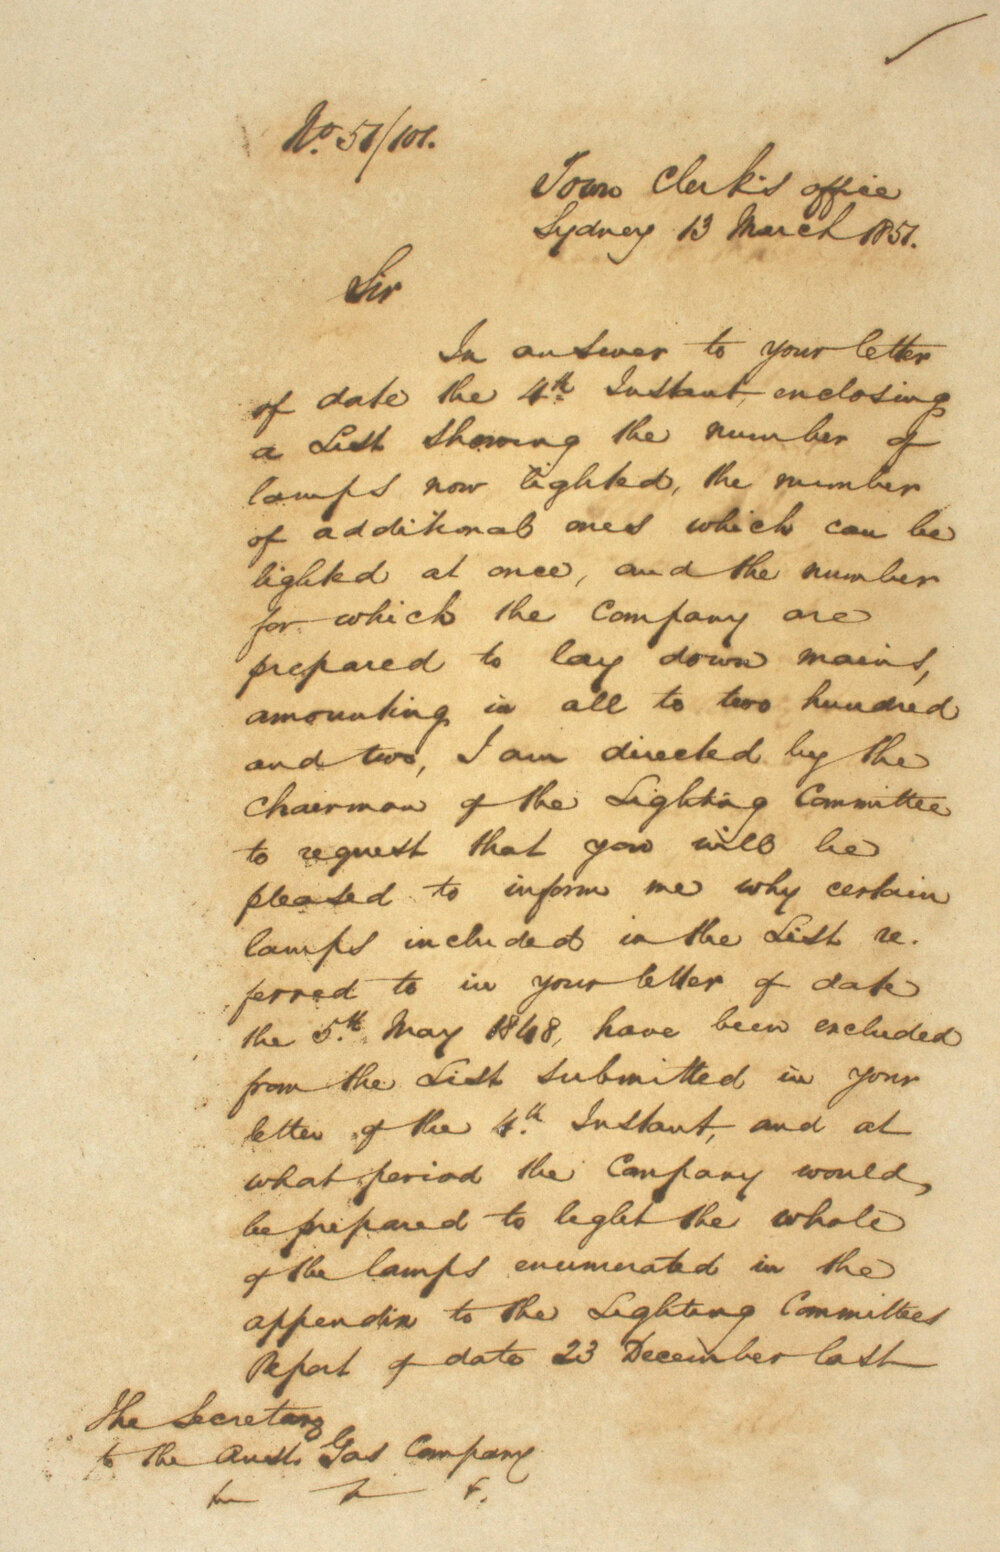 No. 51/101.
Town Clerk's office
Sydney 13 March 1851.
Sir
In answer to your letter
of date the 4th Instant, enclosing
a List showing the number of
lamps now lighted, the number
of additional ones which can be
lighted at once, and the number
for which the Company are
prepared to lay down mains,
amounting in all to two hundred
and two, I am directed by the
Chairman of the Lighting Committee
to request that you will be
pleased to inform me why certain
lamps included in the List re.
ferred to in your letter of date
the 5th May 1848, have been excluded
from the List submitted in your
letter of the 4th Instant, and at
what period the Company would,
be prepared to light the whole
of the lamps enumerated in the
appendix to the Lighting Committees
Report of date 23 December last
The Secretary
to the Aust. Gas Company